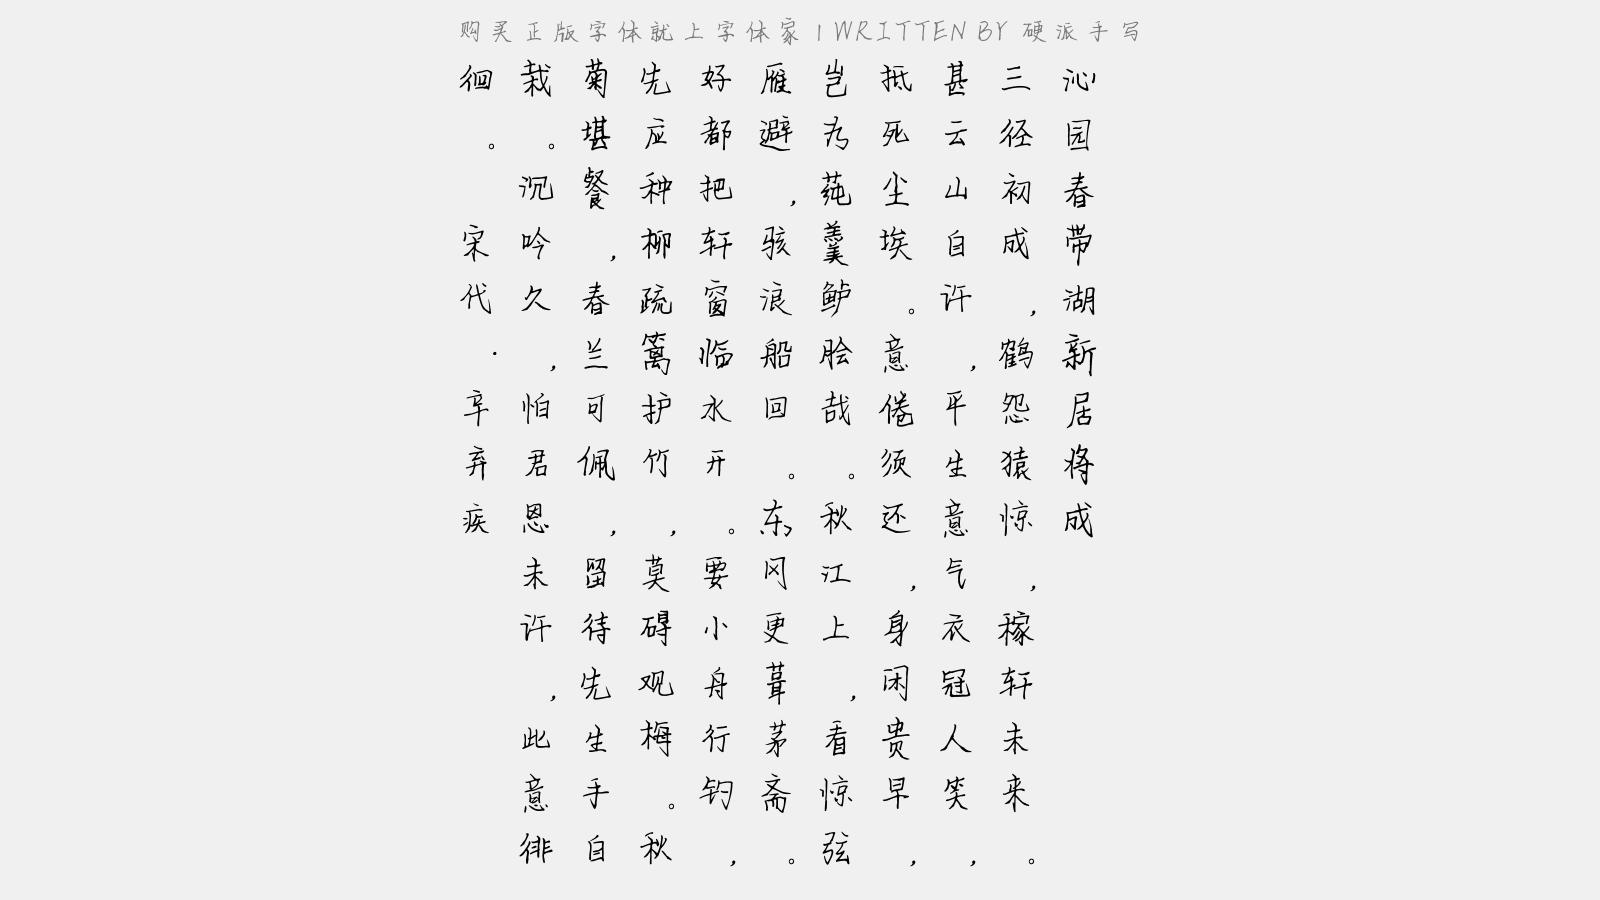 购买正版字体就上字体家 | WRITTEN BY 硬派手写
沁园春带湖新居将成
三径初成，鹤怨猿惊，稼轩未来。
甚云山自许，平生意气，衣冠人笑，
抵死尘埃。意倦须还，身闲贵早，
岂为莼羹鲈脍哉。秋江上，看惊弦
雁避，骇浪船回。东冈更葺茅斋。
好都把轩窗临水开。要小舟行钓，
先应种柳疏篱护竹，莫碍观梅。秋
菊堪餐，春兰可佩，留待先生手自
栽。沉吟久，怕君恩未许，此意徘
徊。 宋代·辛弃疾